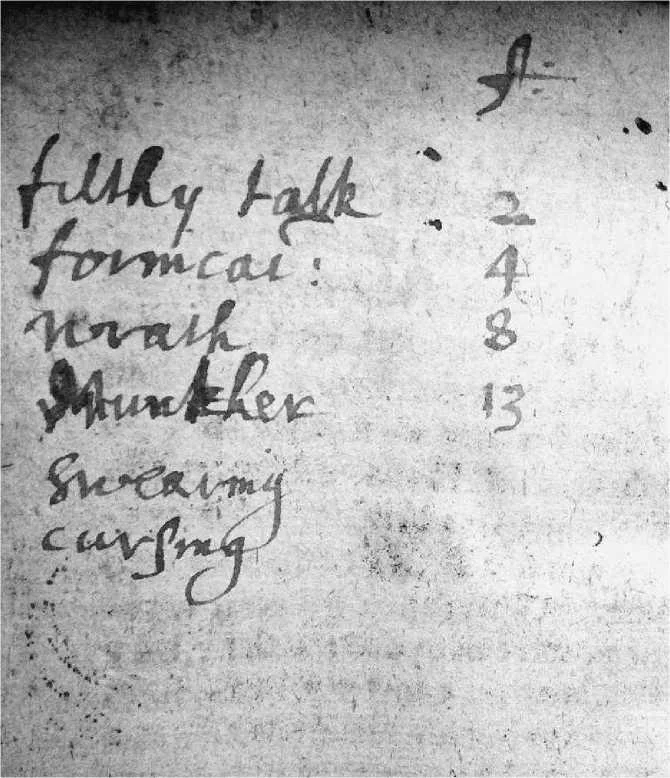 filthy talk 2
fornicat: 4
wrath 8
drunkher 13
swearing
cursing